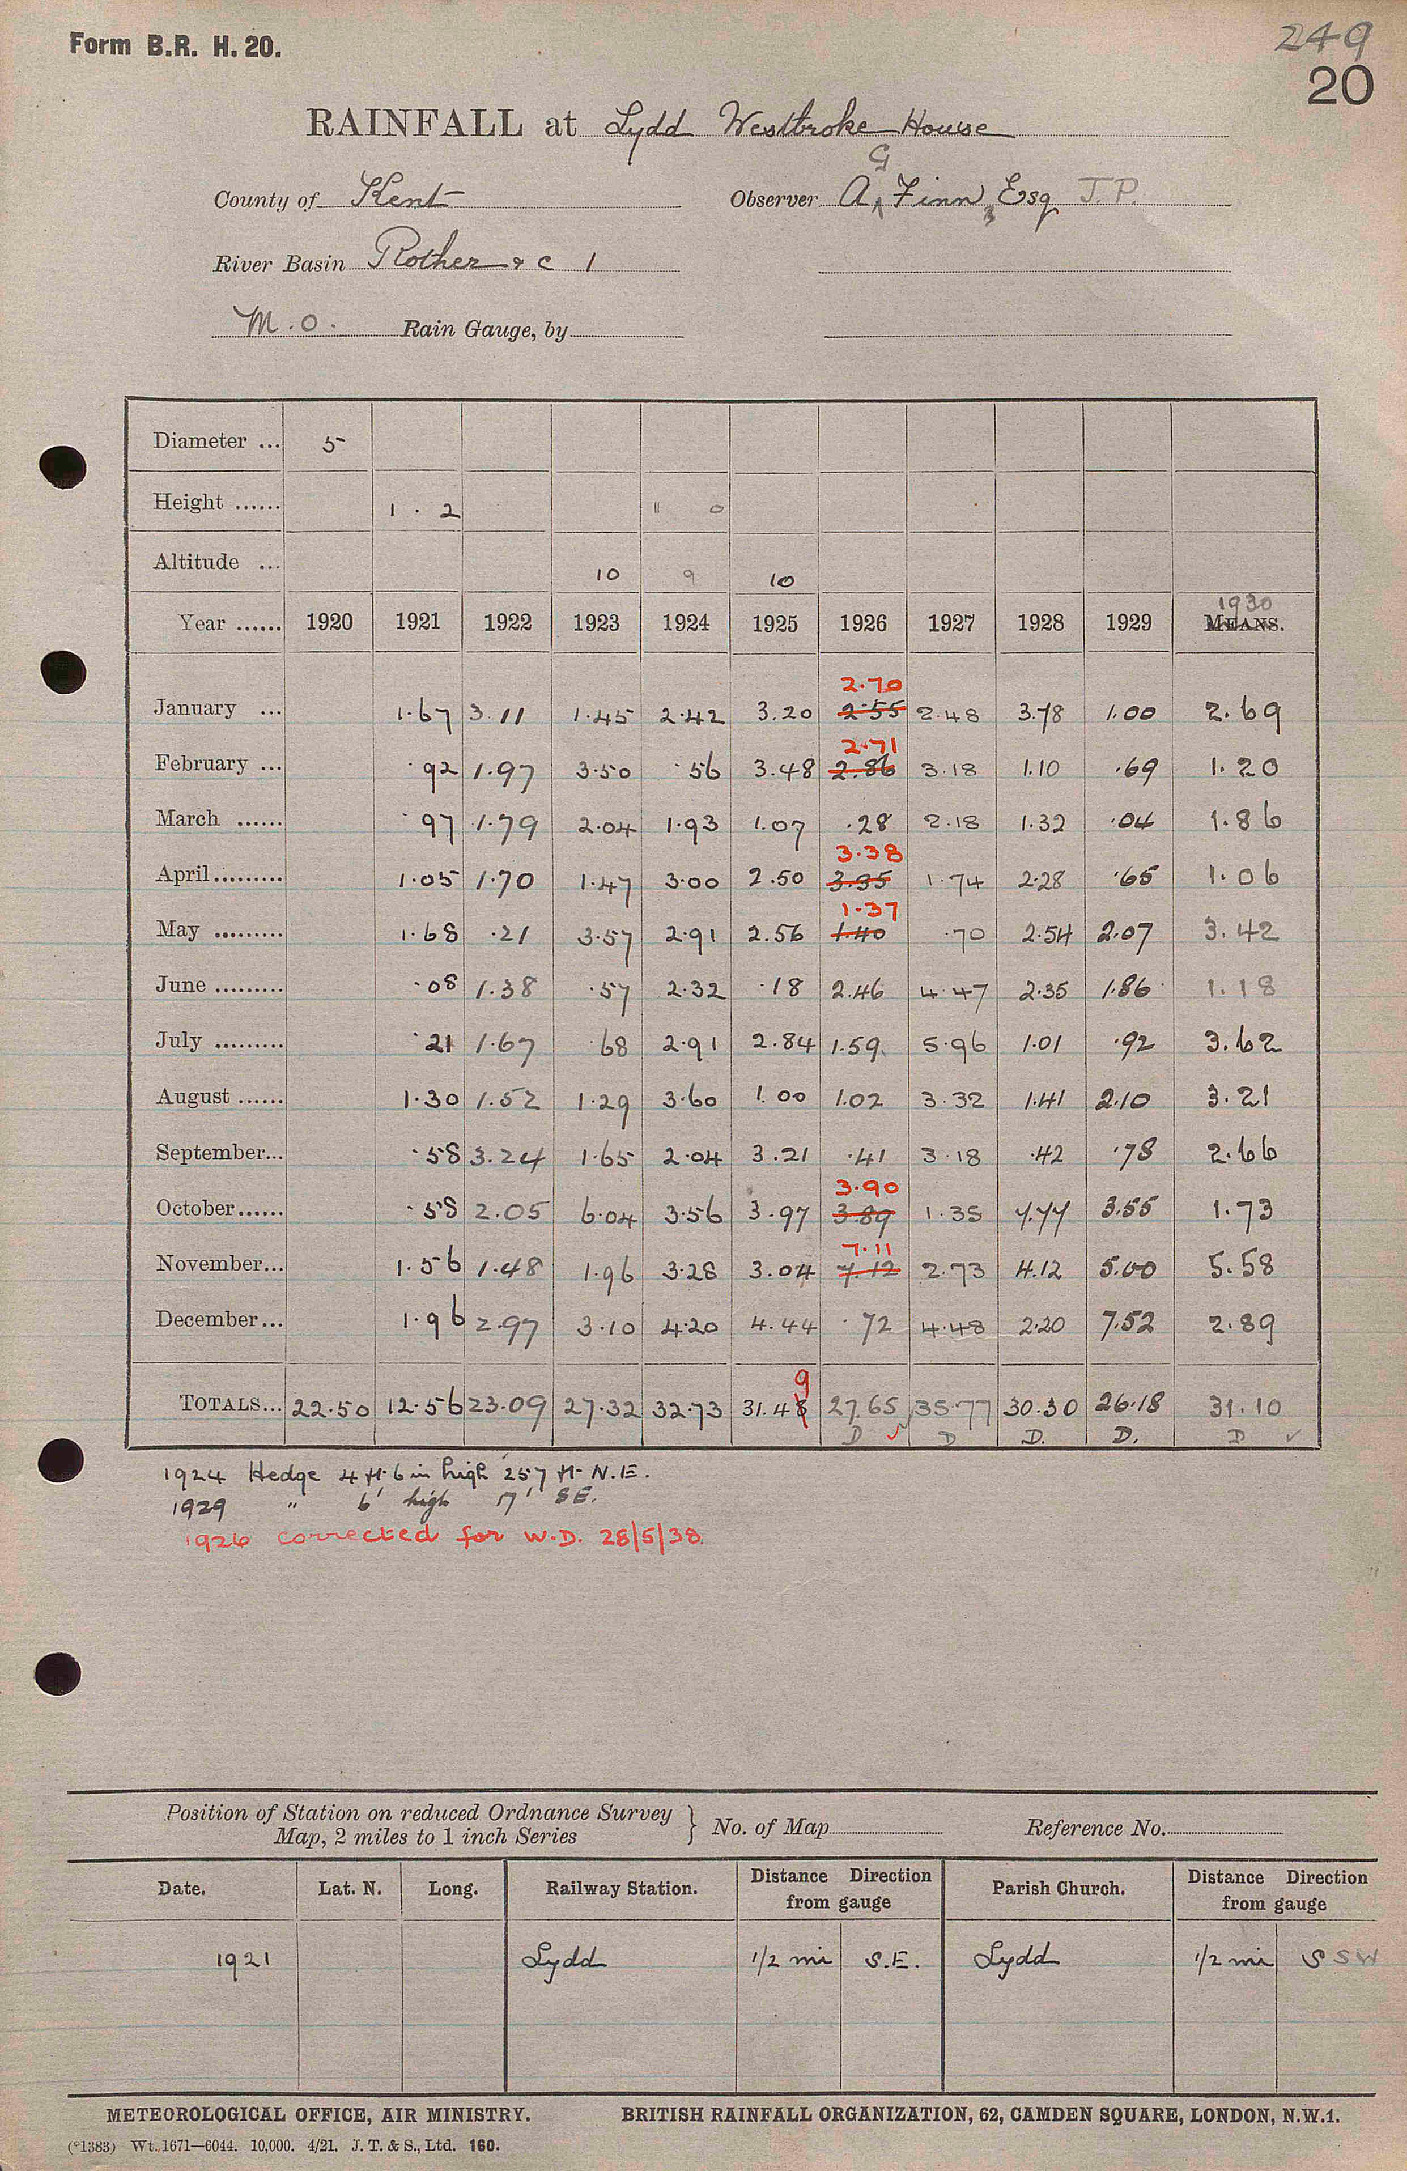 Form B.R. H. 20.
249
20
RAINFALL at Lydd Westbroke House
County of Kent Observer A G Finn, Esq J.P.
River Basin Rother & c 1
M.O. Rain Gauge, by
Diameter ... 5
Height ...... 1 . 2 11 0
Altitude ... 10 9 10
1930
Year ...... 1920 1921 1922 1923 1924 1925 1926 1927 1928 1929 MEANS.
2.70
January ... 1.67 3.11 1.45 2.42 3.20 2.55 2.48 3.78 1.00 2.69
2.71
February ... .92 1.97 3.50 .56 3.48 2.86 3.18 1.10 .69 1.20
March ...... .97 1.79 2.04 1.93 1.07 .28 2.18 1.32 .04 1.86
3.38
April......... 1.05 1.70 1.47 3.00 2.50 3.35 1.74 2.28 .65 1.06
1.37
May ......... 1.68 .21 3.57 2.91 2.56 1.40 .70 2.54 2.07 3.42
June ......... .08 1.38 .57 2.32 .18 2.46 4.47 2.35 1.86 1.18
July ......... .21 1.67 .68 2.91 2.84 1.59 5.96 1.01 .92 3.62
August ...... 1.30 1.52 1.29 3.60 1.00 1.02 3.32 1.41 2.10 3.21
September... .58 3.24 1.65 2.04 3.21 .41 3.18 .42 .78 2.66
3.90
October...... .58 2.05 6.04 3.56 3.97 3.89 1.35 7.77 3.55 1.73
7.11
November... 1.56 1.48 1.96 3.28 3.04 7.12 2.73 4.12 5.00 5.58
December... 1.96 2.97 3.10 4.20 4.44 .72 4.48 2.20 7.52 2.89
9
TOTALS... 22.50 12.56 23.09 27.32 32.73 31.48 27.65 35.77 30.30 26.18 31.10
D D D. D. D
1924 Hedge 4 ft 6 in high 257 ft N.E.
1929 " 6' high 17' SE.
1926 corrected for W.D. 28/5/38.
Position of Station on reduced Ordnance Survey
Map, 2 miles to 1 inch Series } No. of Map Reference No.
Date. Lat. N. Long. Railway Station. Distance Direction from gauge Parish Church. Distance Direction from gauge
1921 Lydd 1/2 mi S.E. Lydd 1/2 mi S SW
METEOROLOGICAL OFFICE, AIR MINISTRY. BRITISH RAINFALL ORGANIZATION, 62, CAMDEN SQUARE, LONDON, N.W.1.
(*1383) Wt. 1671—6044. 10,000. 4/21. J. T. & S., Ltd. 160.